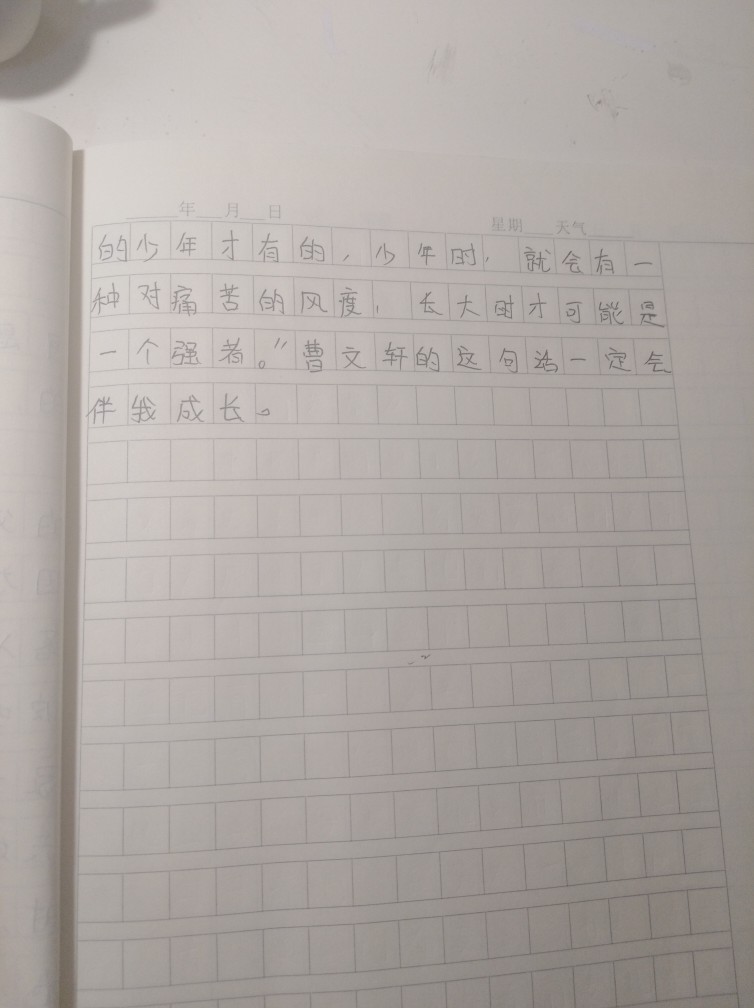 ____年___月___日
星期____天气_____
的少年才有的,少年时,就会有一
种对痛苦的风度,长大时才可能是
一个强者。”曹文轩的这句话一定会
伴我成长。